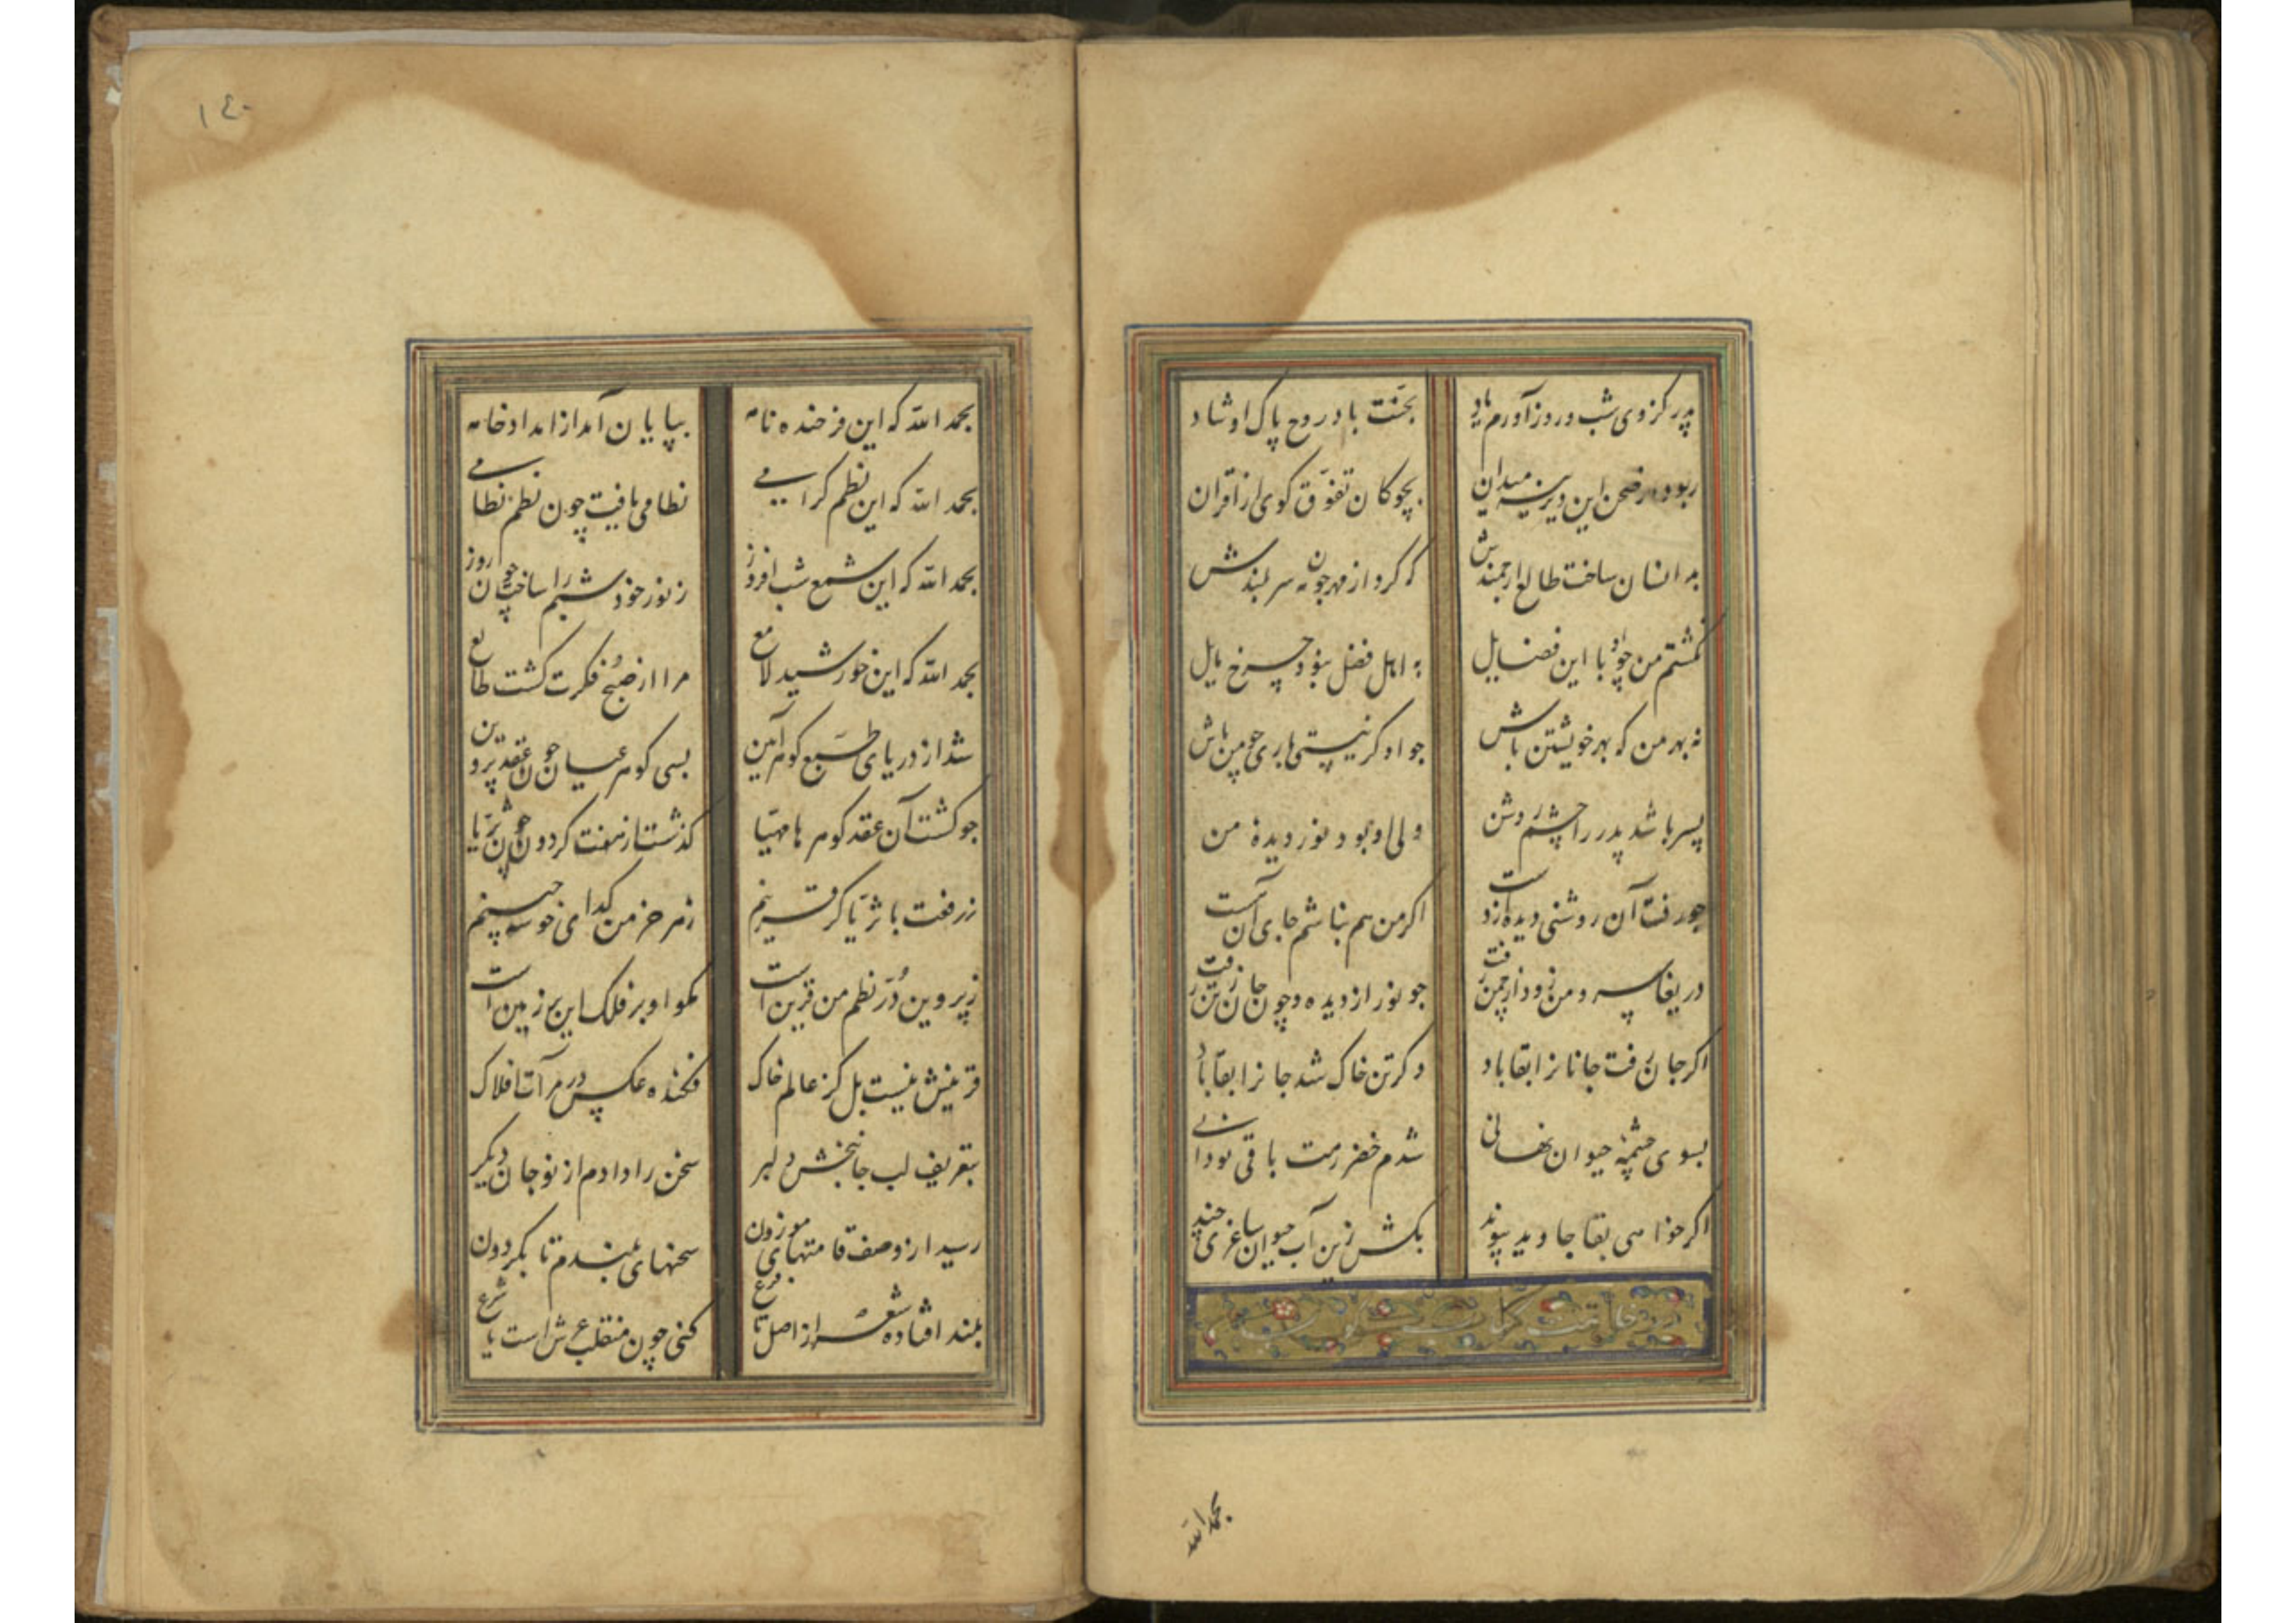 پدر کز وی شب و روز آورم یاد بجنت باد روح پاک او شاد
ربوده از صحن این دیرینه میدان بچوکان تفوق کوی از اقران
بد انسان ساخت طالع ارجمندش که کرد از مهر چون مه سر بلندش
نکشتم من چو او با این فضایل به اهل فضل نبود چرخ مایل
نه بهر من که بهر خویشتن باش چو او کر نیستی باری چو من باش
پسر باشد پدر را چشم روشن ولی او بود نور دیدهٔ من
چو رفت آن روشنی دیده از دست اکر من هم نباشم جای آن است
دریغا سرو من زود از چمن رفت چو نور از دیده و چون جان ز تن رفت
اکر جان رفت جانانرا بقا باد وکر تن خاک شد جانرا بقا باد
بسوی چشمهٔ حیوان نهانی شدم خضر رهت باقی تو دانی
اکر خواهی بقا جاوید پیوند بکش زین آب حیوان ساغری چند
در خاتمت کتاب
بحمدالله
١٤٠
بحمد الله که این فرخنده نامه بپایان آمد از امداد خامه
بحمد الله که این نظم کرامی نظامی یافت چون نظم نظامی
بحمد الله که این شمع شب افروز ز نور خود شبم را ساخت چون روز
بحمد الله که این خورشید لامع مرا از صبح فکرت کشت طالع
شد از دریای طبع کوهر آیین بسی کوهر عیان چون عقد پروین
چو کشت آن عقد کوهرها مهیا کذشت از هفت کردون چون ثریا
ز رفعت با ثریا کر قرینم ز هر خرمن کدای خوشه چینم
ز پروین در نظم من قرین است مکو او بر فلک این بر زمین است
قرینش نیست بل کز عالم خاک فکنده عکس در مرآت افلاک
بتعریف لب جانبخش دلبر سخن را دادم از نو جان دیکر
رسید از وصف قامتهای موزون سخنهای بلندم تا بکردون
بلند افتاده شعر از اصل تا فرع کنی چون منقلب عرش است یا شرع